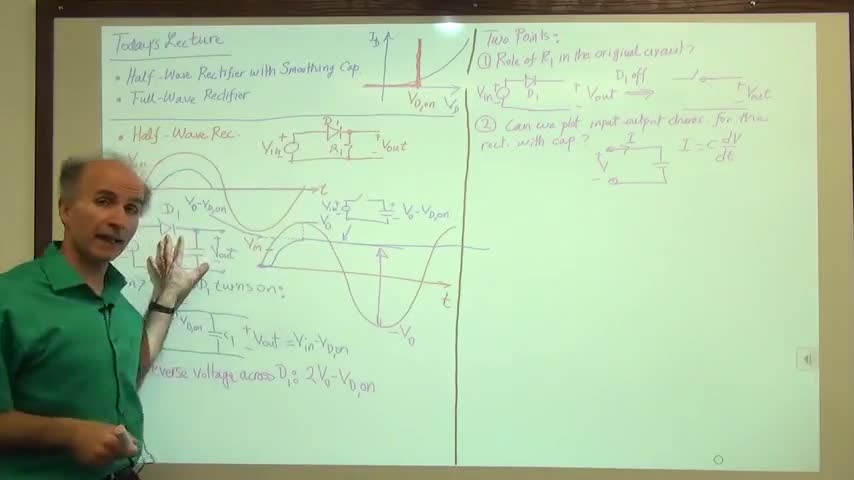 Today's Lecture
• Half-Wave Rectifier with Smoothing Cap.
• Full-Wave Rectifier
I_D
V_D,on
V_D
• Half-Wave Rec.
V_in
+
-
D1
R1
+
-
V_out
V_in
t
V0-V_D,on
D1
+
V_out
-
V_in
V0
V0-V_D,on
t
-V0
D1 turns on:
V_D,on
C1
+
-
V_out = V_in-V_D,on
everse voltage across D1: 2V0-V_D,on
Two Points:
① Role of R1 in the original circuit?
V_in
D1
+
-
V_out
D1 off
⇒
+
-
V_out
② Can we plot input-output charac. for the
rect. with cap?
I
+
V
-
I = C dV/dt